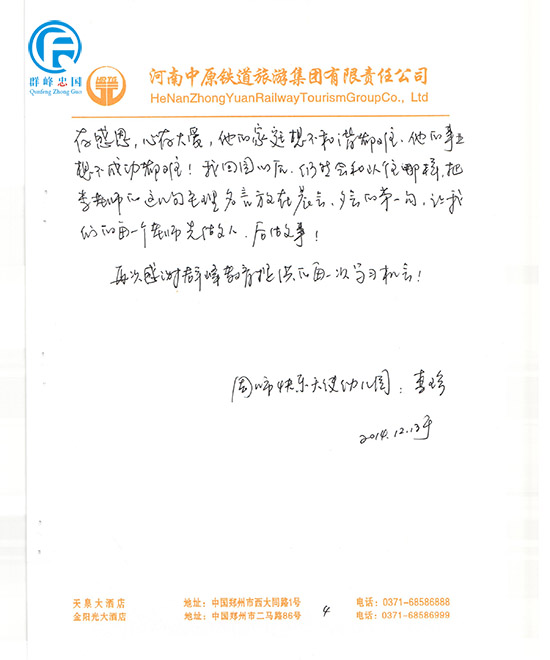 群峰忠国
Qunfeng Zhong Guo
河南中原铁道旅游集团有限责任公司
HeNanZhongYuanRailwayTourismGroupCo., Ltd
存感恩,心存大爱,他的家庭想不和谐都难,他的事业
想不成功都难!我回园以后,仍然会和以往那样,把
李老师的这几句至理名言放在晨会、夕会的第一句,让我
们的每一个老师先做人,后做事!
再次感谢群峰教育提供的每一次学习机会!
快乐天使幼儿园:李珍
2014.12.13
天泉大酒店 地址:中国郑州市西大同路1号 电话:0371-68586888
金阳光大酒店 地址:中国郑州市二马路86号 电话:0371-68586999
4